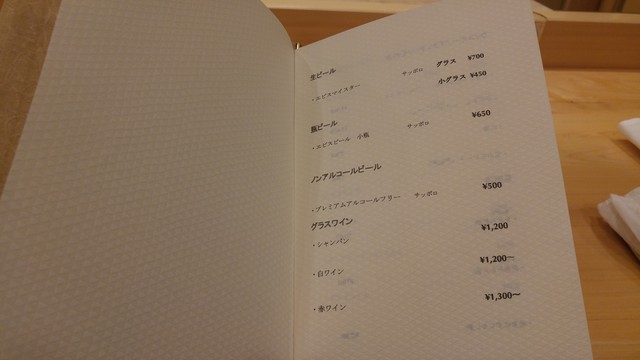 生ビール
・エビスマイスター サッポロ グラス ¥700
小グラス ¥450
瓶ビール
・エビスビール 小瓶 サッポロ ¥650
ノンアルコールビール
・プレミアムアルコールフリー サッポロ ¥500
グラスワイン
・シャンパン ¥1,200
・白ワイン ¥1,200～
・赤ワイン ¥1,300～